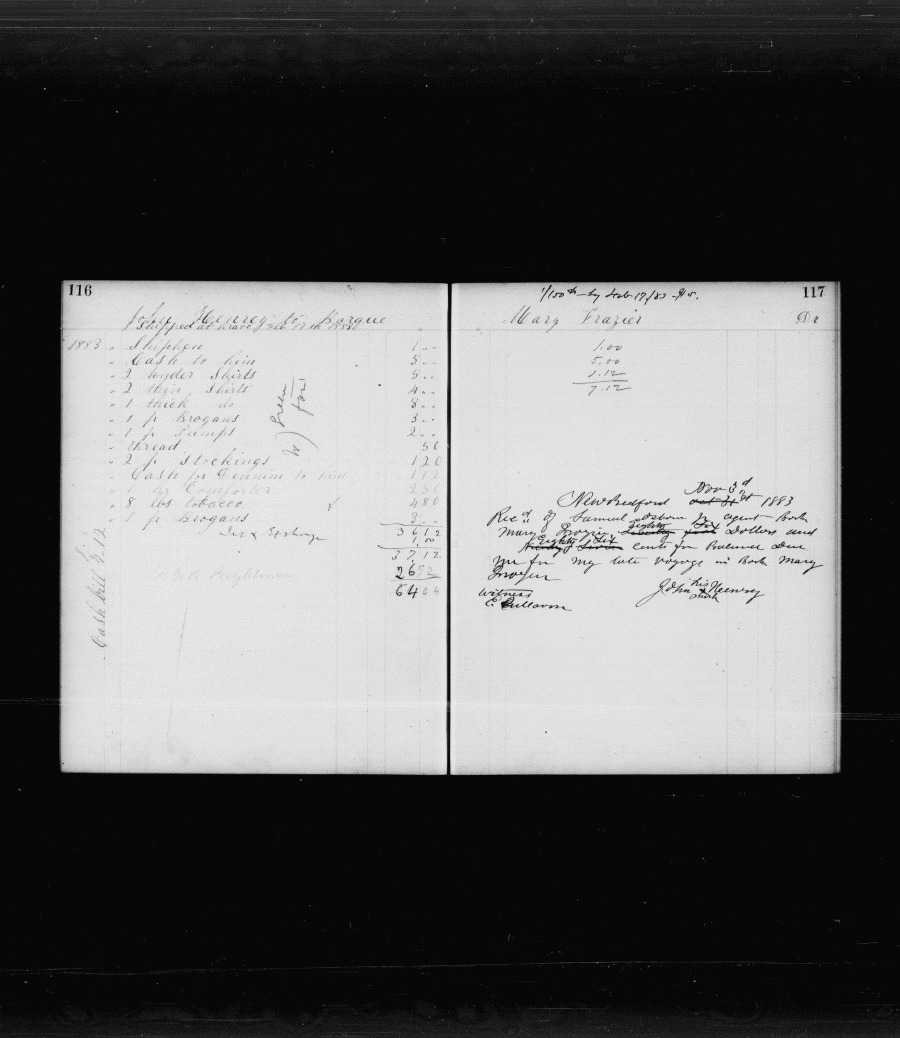 116
John Henrey to Barque
Shipped at Brava Feb 17th 1883
1883 " Shiphen 1 " "
" Cash to him 5 " "
" 2 under Shirts 5 " "
" 2 thin Shirts 4 " "
" 1 thick do 8 " "
" 1 p Brogans 3 " "
" 1 p Pumps 2 " "
" thread 50
" 2 p Stockings 1 20
" Cash for Dennim to him 1 12
" Comforter
" 8 lbs tobacco 4 80
" 1 p Brogans 3 " "
Int & Exchange 36 12
1.00
37.12
26 92
64 04
Cash bill 7.12
117
1/150th by Feb 17/83
Mary Frazier Dr
1.00
5.00
1.12
7.12
Nov 3d
New Bedford Oct 31st 1883
Recd of Samuel Osborn Jr agent Bark
Mary Frazier Eighty Six Dollars and
Eighty Six cents for Balance Due
me for my late voyage in Bark Mary
Frazier
Witness John his x mark Heenry